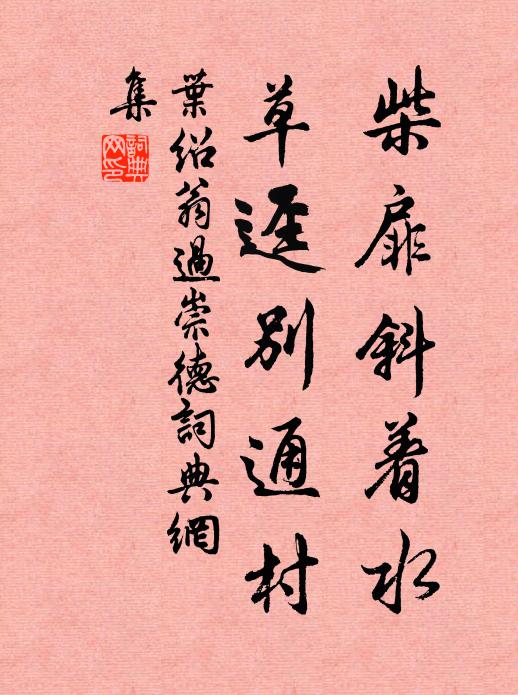 柴扉斜着水
草逕別通村
葉紹翁過崇德詞典網
集
詞典網印